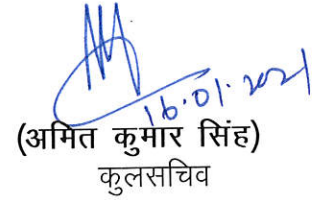 16.01.2021
(अमित कुमार सिंह)
कुलसचिव